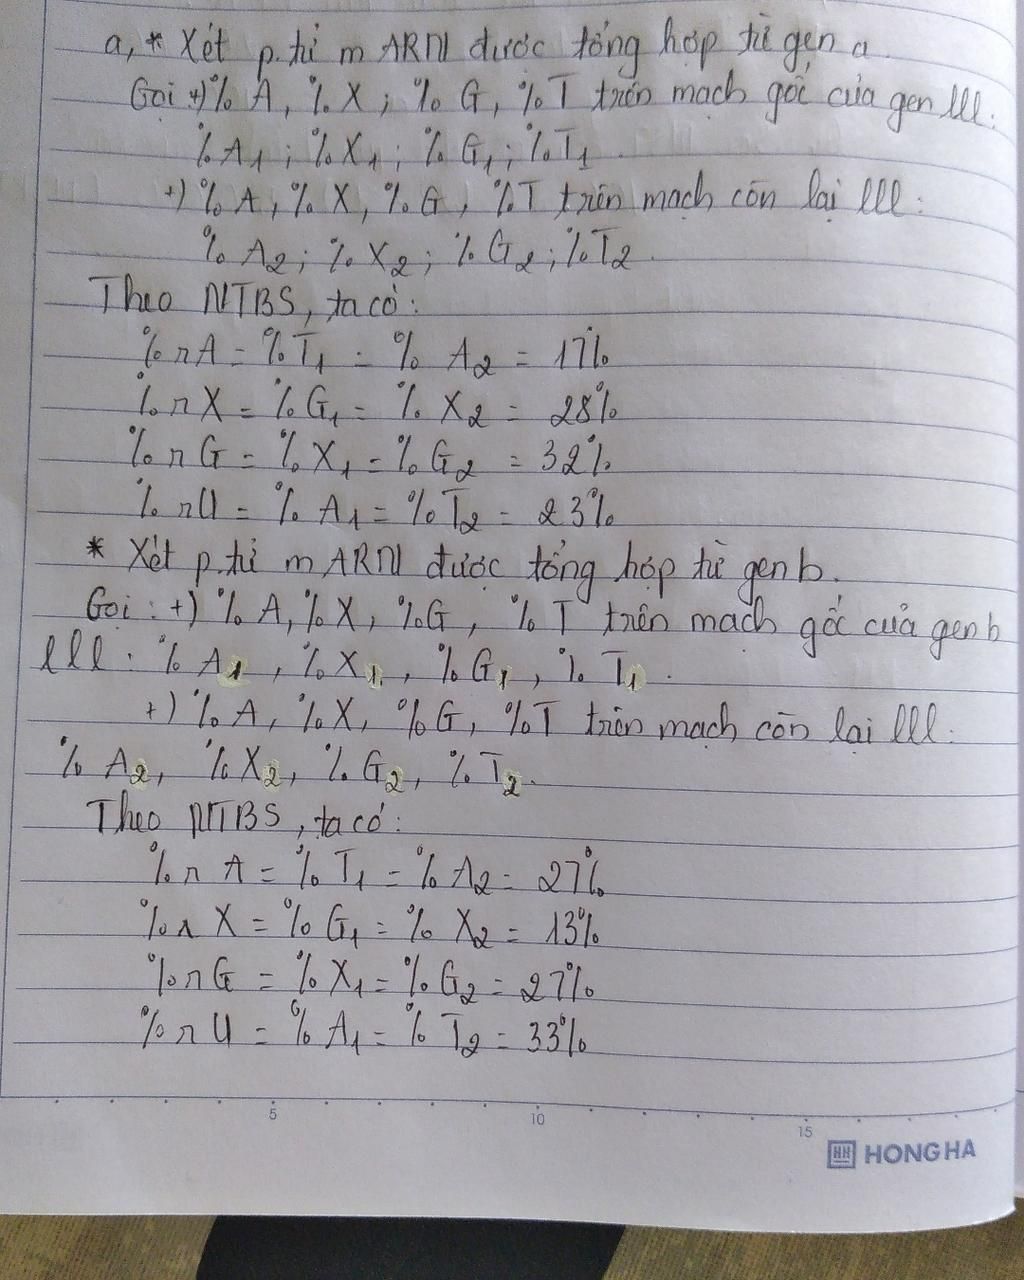 a, * Xét p.tử mARN được tổng hợp từ gen a
Gọi +) % A, % X; % G, % T trên mạch gốc của gen lll:
% A1; % X1; % G1; % T1.
+) % A, % X, % G, % T trên mạch còn lại lll:
% A2; % X2; % G2; % T2.
Theo NTBS, ta có:
% rA = % T1 = % A2 = 17%
% rX = % G1 = % X2 = 28%
% rG = % X1 = % G2 = 32%
% rU = % A1 = % T2 = 23%
* Xét p.tử mARN được tổng hợp từ gen b.
Gọi: +) % A, % X, % G, % T trên mạch gốc của gen b
lll: % A1, % X1, % G1, % T1.
+) % A, % X, % G, % T trên mạch còn lại lll:
% A2, % X2, % G2, % T2.
Theo NTBS, ta có:
% rA = % T1 = % A2 = 27%
% rX = % G1 = % X2 = 13%
% rG = % X1 = % G2 = 27%
% rU = % A1 = % T2 = 33%
5 10 15
HH HONG HA